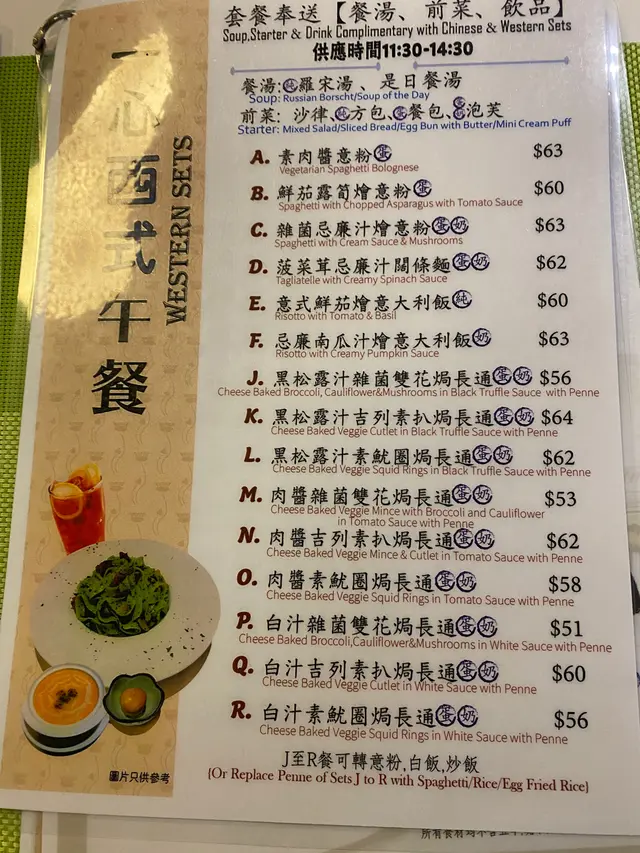 套餐奉送【餐湯、前菜、飲品】
Soup,Starter & Drink Complimentary with Chinese & Western Sets
供應時間11:30-14:30
一心西式午餐
WESTERN SETS
餐湯:純羅宋湯、是日餐湯
Soup: Russian Borscht/Soup of the Day
前菜: 沙律、純方包、蛋餐包、蛋奶泡芙
Starter: Mixed Salad/Sliced Bread/Egg Bun with Butter/Mini Cream Puff
A. 素肉醬意粉蛋 $63
Vegetarian Spaghetti Bolognese
B. 鮮茄露筍燴意粉蛋 $60
Spaghetti with Chopped Asparagus with Tomato Sauce
C. 雜菌忌廉汁燴意粉蛋奶 $63
Spaghetti with Cream Sauce & Mushrooms
D. 菠菜茸忌廉汁闊條麵蛋奶 $62
Tagliatelle with Creamy Spinach Sauce
E. 意式鮮茄燴意大利飯純 $60
Risotto with Tomato & Basil
F. 忌廉南瓜汁燴意大利飯奶 $63
Risotto with Creamy Pumpkin Sauce
J. 黑松露汁雜菌雙花焗長通蛋奶 $56
Cheese Baked Broccoli, Cauliflower&Mushrooms in Black Truffle Sauce with Penne
K. 黑松露汁吉列素扒焗長通蛋奶 $64
Cheese Baked Veggie Cutlet in Black Truffle Sauce with Penne
L. 黑松露汁素魷圈焗長通蛋奶 $62
Cheese Baked Veggie Squid Rings in Black Truffle Sauce with Penne
M. 肉醬雜菌雙花焗長通蛋奶 $53
Cheese Baked Veggie Mince with Broccoli and Cauliflower
in Tomato Sauce with Penne
N. 肉醬吉列素扒焗長通蛋奶 $62
Cheese Baked Veggie Mince & Cutlet in Tomato Sauce with Penne
O. 肉醬素魷圈焗長通蛋奶 $58
Cheese Baked Veggie Squid Rings in Tomato Sauce with Penne
P. 白汁雜菌雙花焗長通蛋奶 $51
Cheese Baked Broccoli,Cauliflower&Mushrooms in White Sauce with Penne
Q. 白汁吉列素扒焗長通蛋奶 $60
Cheese Baked Veggie Cutlet in White Sauce with Penne
R. 白汁素魷圈焗長通蛋奶 $56
Cheese Baked Veggie Squid Rings in White Sauce with Penne
J至R餐可轉意粉,白飯,炒飯
{Or Replace Penne of Sets J to R with Spaghetti/Rice/Egg Fried Rice}
圖片只供參考
所有食材均不含